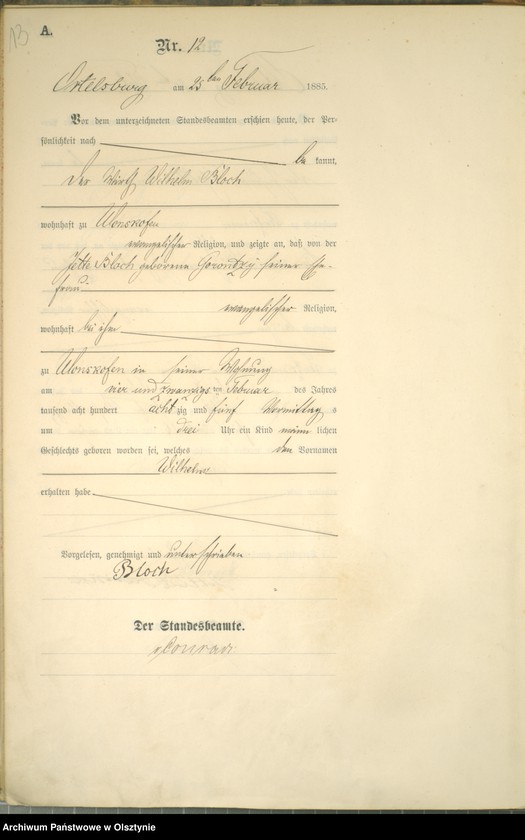 13
A.
Nr. 12
Ortelsburg am 25ten Februar 1885.
Vor dem unterzeichneten Standesbeamten erschien heute, der Per-
sönlichkeit nach
be kannt,
der Wirth Wilhelm Bloch
wohnhaft zu Wonskofen
evangelischer Religion, und zeigte an, daß von der
Bloch geborene seiner Ehe-
frau
evangelischer Religion,
wohnhaft bei ihm
zu Wonskofen in seiner Wohnung
am vier und zwanzigsten Februar des Jahres
tausend acht hundert achtzig und fünf Vormittags
um drei Uhr ein Kind männlichen
Geschlechts geboren worden sei, welches den Vornamen
Wilhelm
erhalten habe
Vorgelesen, genehmigt und unterschrieben
Bloch
Der Standesbeamte.
Conrad
Archiwum Państwowe w Olsztynie